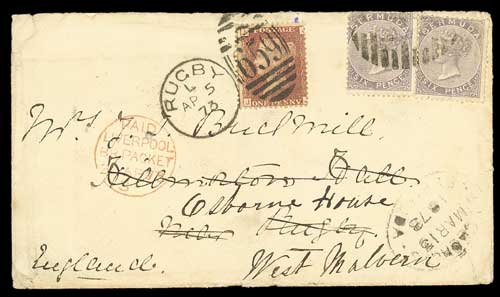 POSTAGE
ONE PENNY
BERMUDA
SIX PENCE
BERMUDA
SIX PENCE
659
RUGBY
L
AP 5
73
PAID
LIVERPOOL
PACKET
Mrs Buckmill
Hall
Osborne House
Near Rugby
West Malvern
England.
MAR 13
73